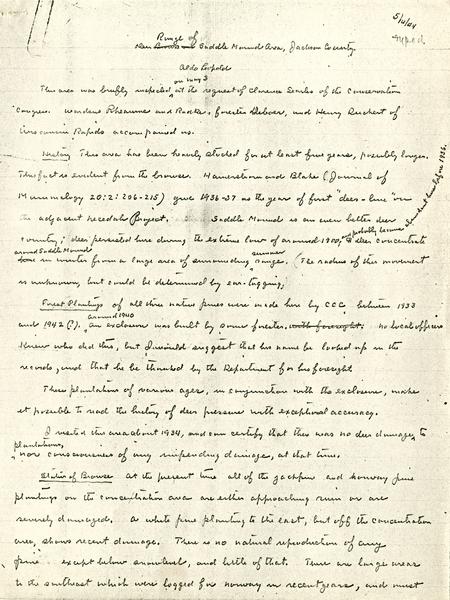 5/10/44
typed
Range of
Deer Saddle Mound Area, Jackson County
Aldo Leopold
on May 3
This area was briefly inspected, at the request of Clarence Searles of the Conservation
Congress. Wardens and Radke, forester and Henry Ruckert of
Wisconsin Rapids accompanied us.
History This area has been heavily stocked for at least five years, possibly longer.
This fact is evident from the browse. Hamerstrom and Blake (Journal of
Mammalogy 20:2:206-215) give 1936-37 as the year of first "deer-line" on
the adjacent Necedah Project. Saddle Mound is an even better deer
and probably became abundant here before 1936.
country; deer persisted here during the extreme low of around 1900, deer concentrate
around Saddle Mound summer
here in winter from a large area of surrounding range. (The radius of this movement
is unknown, but could be determined by ear-tagging;
Forest Plantings of all three native pines were made here by CCC between 1933
around 1940
and 1942(?). an exclosure was built by some forester with foresight. No local officers
knew who did this, but I would suggest that his name be looked up in the
records, and that he be thanked by the Department for his foresight
These plantations of various ages, in conjunction with the exclosure, make
it possible to read the history of deer pressure with exceptional accuracy.
I visited this area about 1934, and can certify that there was no deer damage to
plantations,
nor consciousness of any impending damage, at that time.
Status of Browse At the present time all of the jackpine and norway pine
plantings on the concentration area are either approaching ruin or are
severely damaged. A white pine planting to the east, but off the concentration
area, shows recent damage. There is no natural reproduction of any
pine except below snowline, and little of that. There are large areas
to the southeast which were logged for norway in recent years, and must